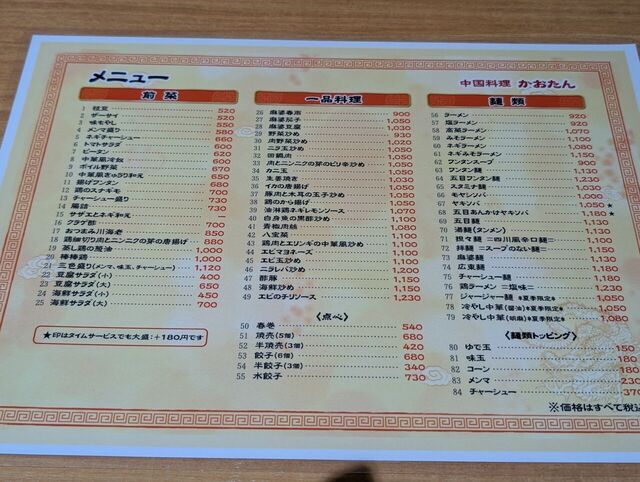 メニュー
中国料理 かおたん
前菜
1 枝豆 520
2 ザーサイ 520
3 味もやし 530
4 メンマ盛り 580
5 ネギチャーシュー 660
6 トマトサラダ 600
7 ピータン 620
8 中華風冷奴 600
9 ボイル野菜 670
10 中華風きゅうり和え 650
11 揚げワンタン 680
12 鶏のスナギモ 700
13 チャーシュー盛り 730
14 腸詰 730
15 サザエとネギ和え ー
16 クラゲ酢 700
17 おつまみ川海老 850
18 鶏細切り肉とニンニクの芽の唐揚げ 880
19 蒸し鶏の葱油 1,000
20 棒棒鶏 1,000
21 三色盛り(メンマ、味玉、チャーシュー) 1,120
22 豆腐サラダ(小) 400
23 豆腐サラダ(大) 650
24 海鮮サラダ(小) 450
25 海鮮サラダ(大) 700
★印はタイムサービスでも大盛:+180円です
一品料理
26 麻婆春雨 900
27 麻婆茄子 1,050
28 麻婆豆腐 1,030
29 野菜炒め 930
30 肉野菜炒め 1,020
31 ニラ玉炒め 1,050
32 回鍋肉 1,050
33 肉とニンニクの芽のピリ辛炒め 1,050
34 カニ玉 1,050
35 生姜焼き 1,030
36 イカの唐揚げ 1,050
37 豚肉と木耳の玉子炒め 1,050
38 鶏のから揚げ 1,050
39 油淋鶏ネギレモンソース 1,070
40 白身魚の黒酢炒め 1,050
41 青椒肉絲 1,080
42 八宝菜 1,100
43 鶏肉とエリンギの中華風炒め 1,100
44 エビマヨネーズ 1,100
45 エビ玉炒め 1,100
46 ニラレバ炒め 1,200
47 酢豚 1,150
48 海鮮炒め 1,150
49 エビのチリソース 1,230
〈点心〉
50 春巻 540
51 焼売(5個) 680
52 半焼売(3個) 420
53 餃子(6個) 680
54 半餃子(3個) 340
55 水餃子 730
麺類
56 ラーメン 920
57 塩ラーメン 920
58 高菜ラーメン 1,070
59 みそラーメン 1,100
60 ネギラーメン 1,080
61 ネギみそラーメン 1,150
62 ワンタンスープ 900
63 ワンタン麺 1,130
64 五目ワンタン 1,230
65 スタミナ麺 1,030
66 モヤシソバ 1,000
67 ヤキソバ 1,050★
68 五目あんかけヤキソバ 1,180★
69 五目麺 1,180
70 湯麺(タンメン) 1,050
71 担々麺=四川風辛口麺= 1,100
72 拌麺=スープのない麺= 1,150
73 麻婆麺 1,150
74 広東麺 1,180
75 チャーシュー麺 1,180
76 鶏ラーメン=塩味= 1,230
77 ジャージャー麺※夏季限定※ 1,050
78 冷やし中華(醤油)※夏季限定※ 1,050
79 冷やし中華(胡麻)※夏季限定※ 1,080
〈麺類トッピング〉
80 ゆで玉 150
81 味玉 180
82 コーン 180
83 メンマ 230
84 チャーシュー 370
※価格はすべて税込